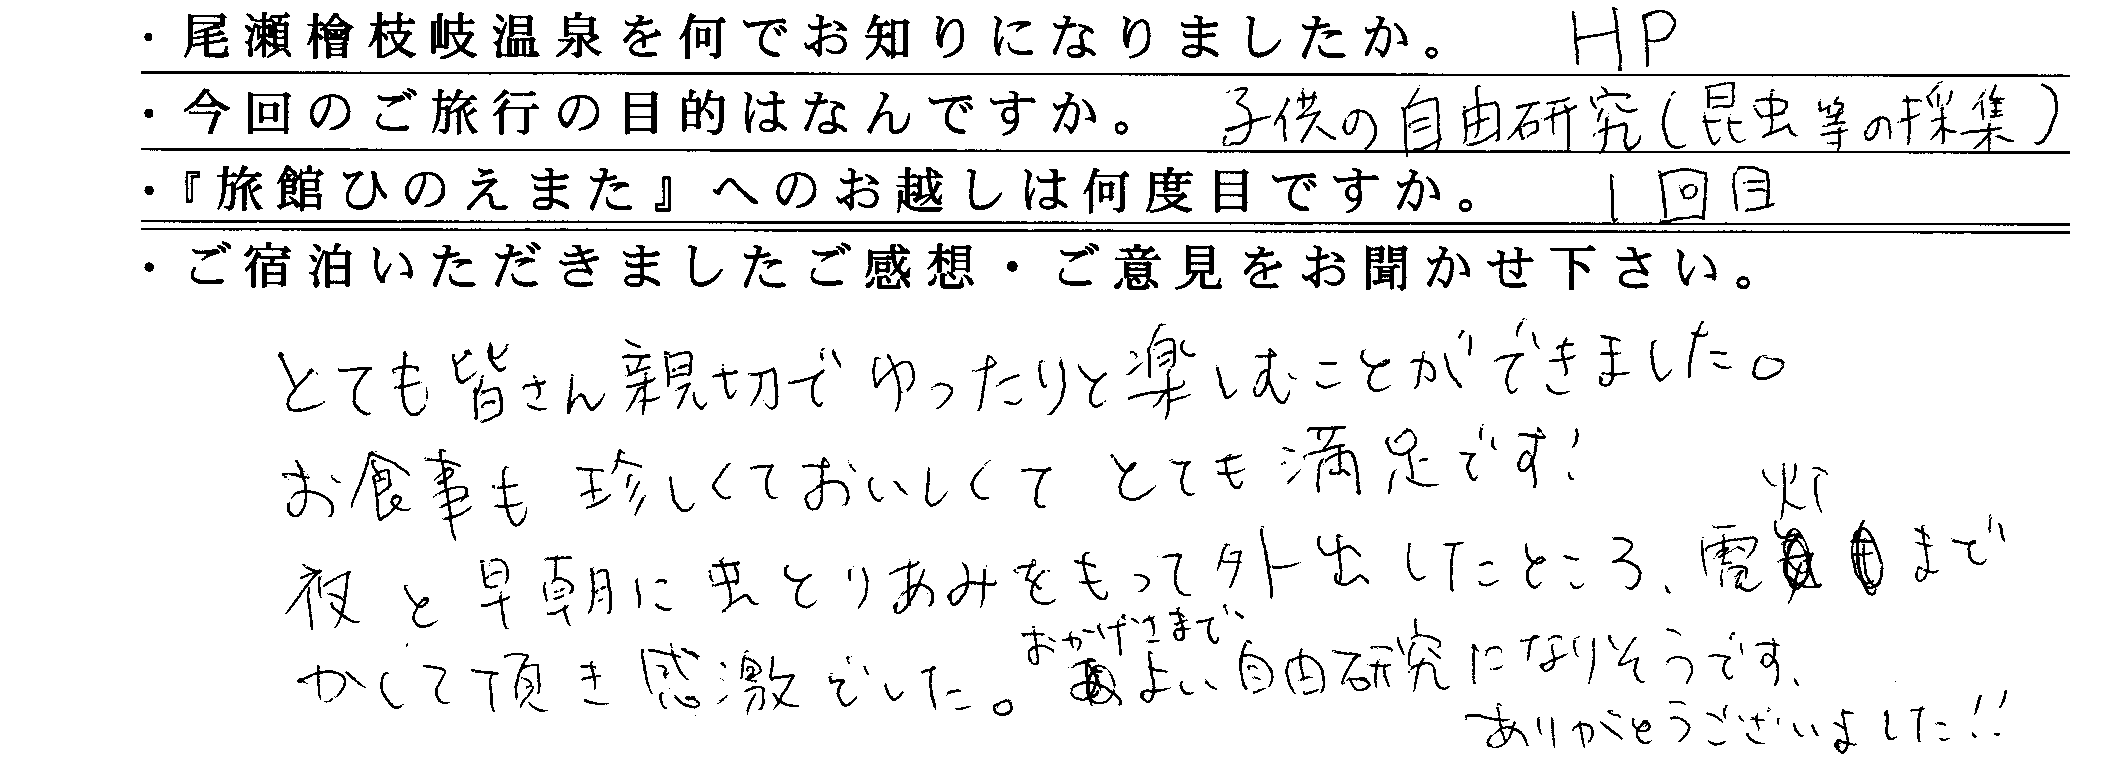 ・尾瀬檜枝岐温泉を何でお知りになりましたか。 HP
・今回のご旅行の目的はなんですか。 子供の自由研究(昆虫等の採集)
・『旅館ひのえまた』へのお越しは何度目ですか。 1回目
・ご宿泊いただきましたご感想・ご意見をお聞かせ下さい。
とても皆さん親切でゆったりと楽しむことができました。
お食事も珍しくておいしくてとても満足です!
夜と早朝に虫とりあみをもって外出したところ、電灯まで
かして頂き感激でした。おかげさまでよい自由研究になりそうです、
ありがとうございました!!